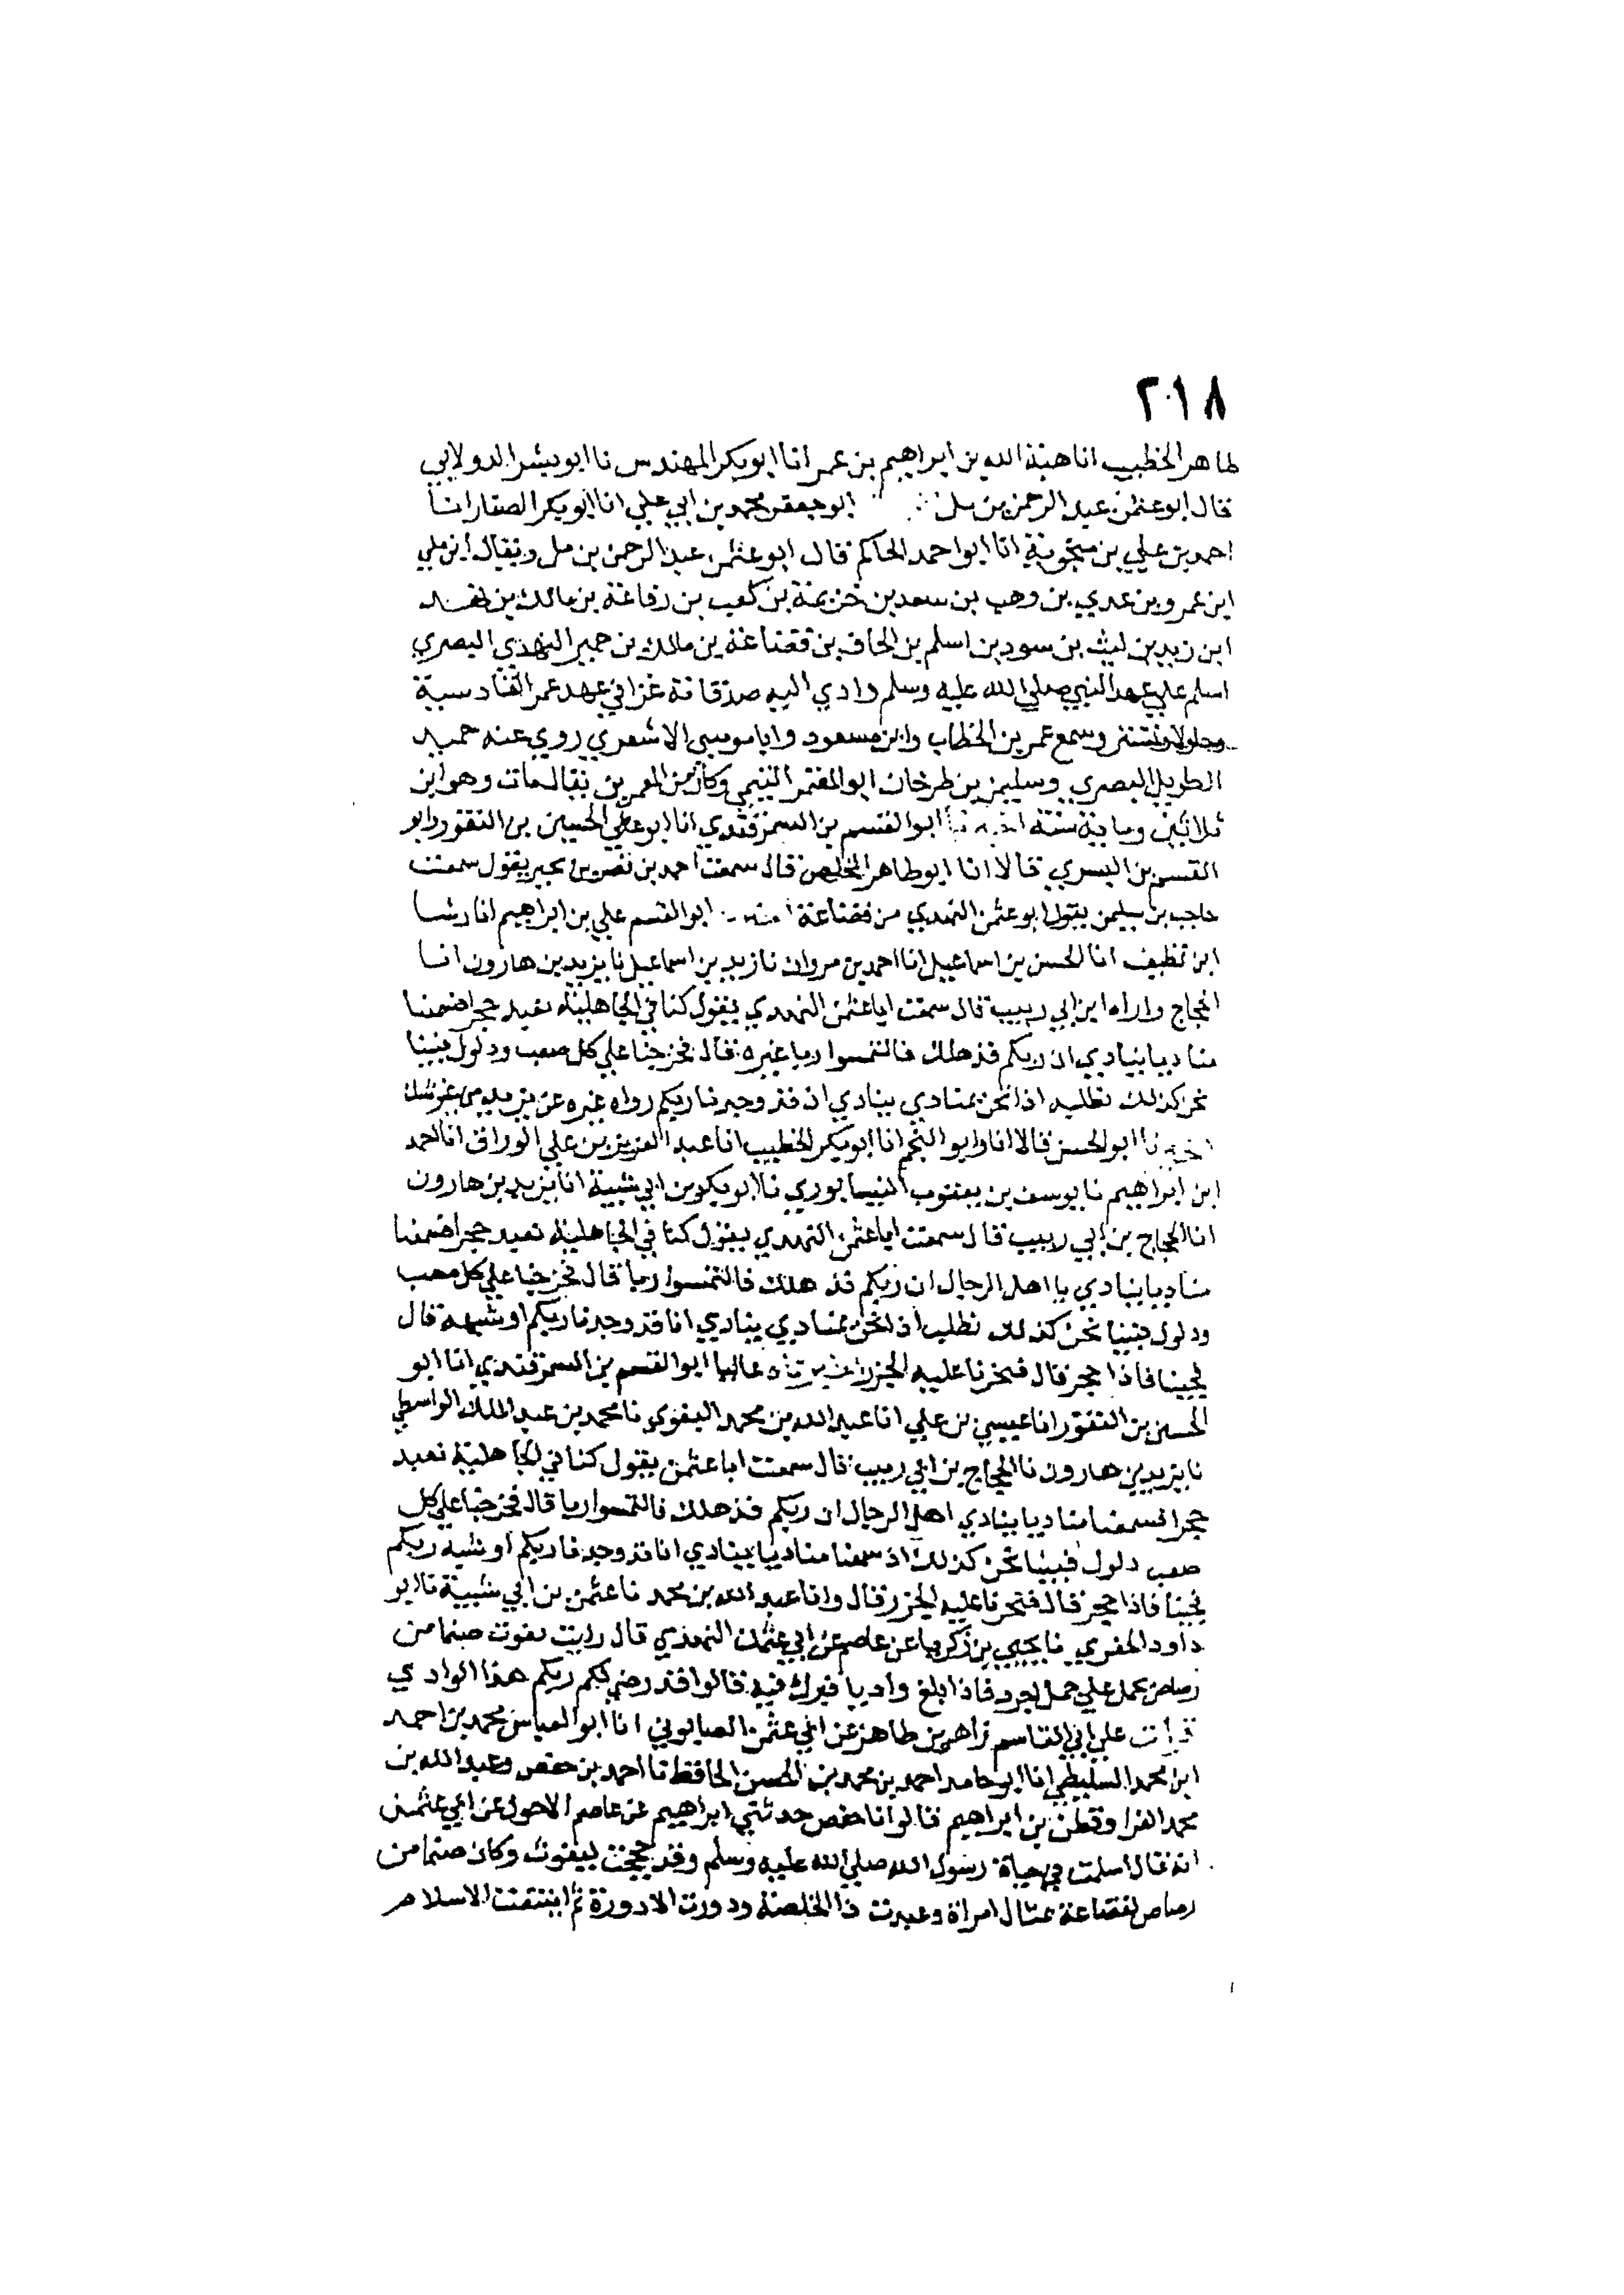 ٢٠١٨
طاهر الخطيب انا هبة الله بن ابراهيم بن عمر انا ابو بكر المهندس نا ابو بشر الدولابي
قال ابو عثمن عبد الرحمن بن مل ابو جعفر محمد بن ابي علي انا ابو بكر الصفار انا
احمد بن علي بن منجوية انا ابو احمد الحاكم قال ابو عثمن عبد الرحمن بن مل ويقال ابن ملي
ابن عمرو بن عدي بن وهب بن سعد بن خزيمة بن كعب بن رفاعة بن مالك بن نهد
ابن زيد بن ليث بن سود بن اسلم بن الحاف بن قضاعة بن مالك بن حمير النهدي البصري
اسلم على عهد النبي صلى الله عليه وسلم وادي اليه صدقاته غزا في عهد عمر القادسية
وجلولا وتستر وسمع عمر بن الخطاب وابن مسعود وابا موسي الاشعري روي عنه حميد
الطويل البصري وسليمن بن طرخان ابو المعتمر التيمي وكان من المعمرين يقال مات وهو ابن
ثلاثين وماية سنة اخبرنا ابو القسم بن السمرقندي انا ابو علي الحسين بن النقور وابو
القسم بن البسري قالا انا ابو طاهر المخلص قال سمعت احمد بن نصر بن بجير يقول سمعت
حاجب بن سليمن يقول ابو عثمن النهدي من قضاعة ابو القسم علي بن ابراهيم انا رشا
ابن نظيف انا الحسن بن اسماعيل انا احمد بن مروان نا زيد بن اسماعيل نا يزيد بن هارون انا
الحجاج واراه ابن ابي ربيب قال سمعت ابا عثمن النهدي يقول كنا في الجاهلية نعبد حجرا فسمعنا
مناديا ينادي ان ربكم قد هلك فالتمسوا ربا غيره قال فخرجنا على كل صعب ودلول فبينا
نحن كذلك نطلبه اذا نحن بمنادي ينادي ان قد وجدنا ربكم رواه غيره عن يزيد
اخبرنا ابو الحسن قالا انا وابو النجم انا ابو بكر الخطيب انا عبد العزيز بن علي الوراق انا احمد
ابن ابراهيم نا يوسف بن يعقوب النيسابوري نا ابو بكر بن ابي شيبة انا يزيد بن هارون
انا الحجاج بن ابي ربيب قال سمعت ابا عثمن النهدي يقول كنا في الجاهلية نعبد حجرا فسمعنا
مناديا ينادي يا اهل الرحال ان ربكم قد هلك فالتمسوا ربا قال فخرجنا على كل صعب
ودلول فبينا نحن كذلك نطلب اذ نحن بمنادي ينادي انا قد وجدنا ربكم او شبهه قال
فجينا فاذا حجر قال فنحرنا عليه الجزر عاليا ابو القسم بن السمرقندي انا ابو
الحسين بن النقور انا عيسي بن علي انا عبد الله بن محمد البغوي نا محمد بن عبد الملك الواسطي
نا يزيد بن هارون نا الحجاج بن ابي ربيب قال سمعت ابا عثمن يقول كنا في الجاهلية نعبد
حجرا فسمعنا مناديا ينادي اهل الرحال ان ربكم قد هلك فالتمسوا ربا قال فخرجنا على كل
صعب دلول فبينا نحن كذلك اذ سمعنا مناديا ينادي انا قد وجدنا ربكم او شبه ربكم
فجينا فاذا حجر قال فنحرنا عليه الجزر قال وانا عبد الله بن محمد نا عثمن بن ابي شيبة نا ابو
داود الحفري نا يحيي بن زكريا عن عاصم عن ابي عثمن النهدي قال رايت يغوث صنما من
رصاص يحمل على جمل اجرد فاذا بلغ واديا فبرك فيه قالوا قد رضي لكم ربكم هذا الوادي
قرات على ابي القاسم زاهر بن طاهر عن ابي عثمن الصابوني انا ابو العباس محمد بن احمد
ابن محمد السليطي انا ابو حامد احمد بن محمد بن الحسن الحافظ نا احمد بن حفص وعبد الله بن
محمد الفرا وقطن بن ابراهيم قالوا نا حفص حدثني ابراهيم عن عاصم الاحول عن ابي عثمن
انه قال اسلمت في حياة رسول الله صلى الله عليه وسلم وقد حججت بيغوث وكان صنما من
رصاص لقضاعة تمثال امراة وعبدت ذا الخلصة ودورت الادورة ثم الاسلام